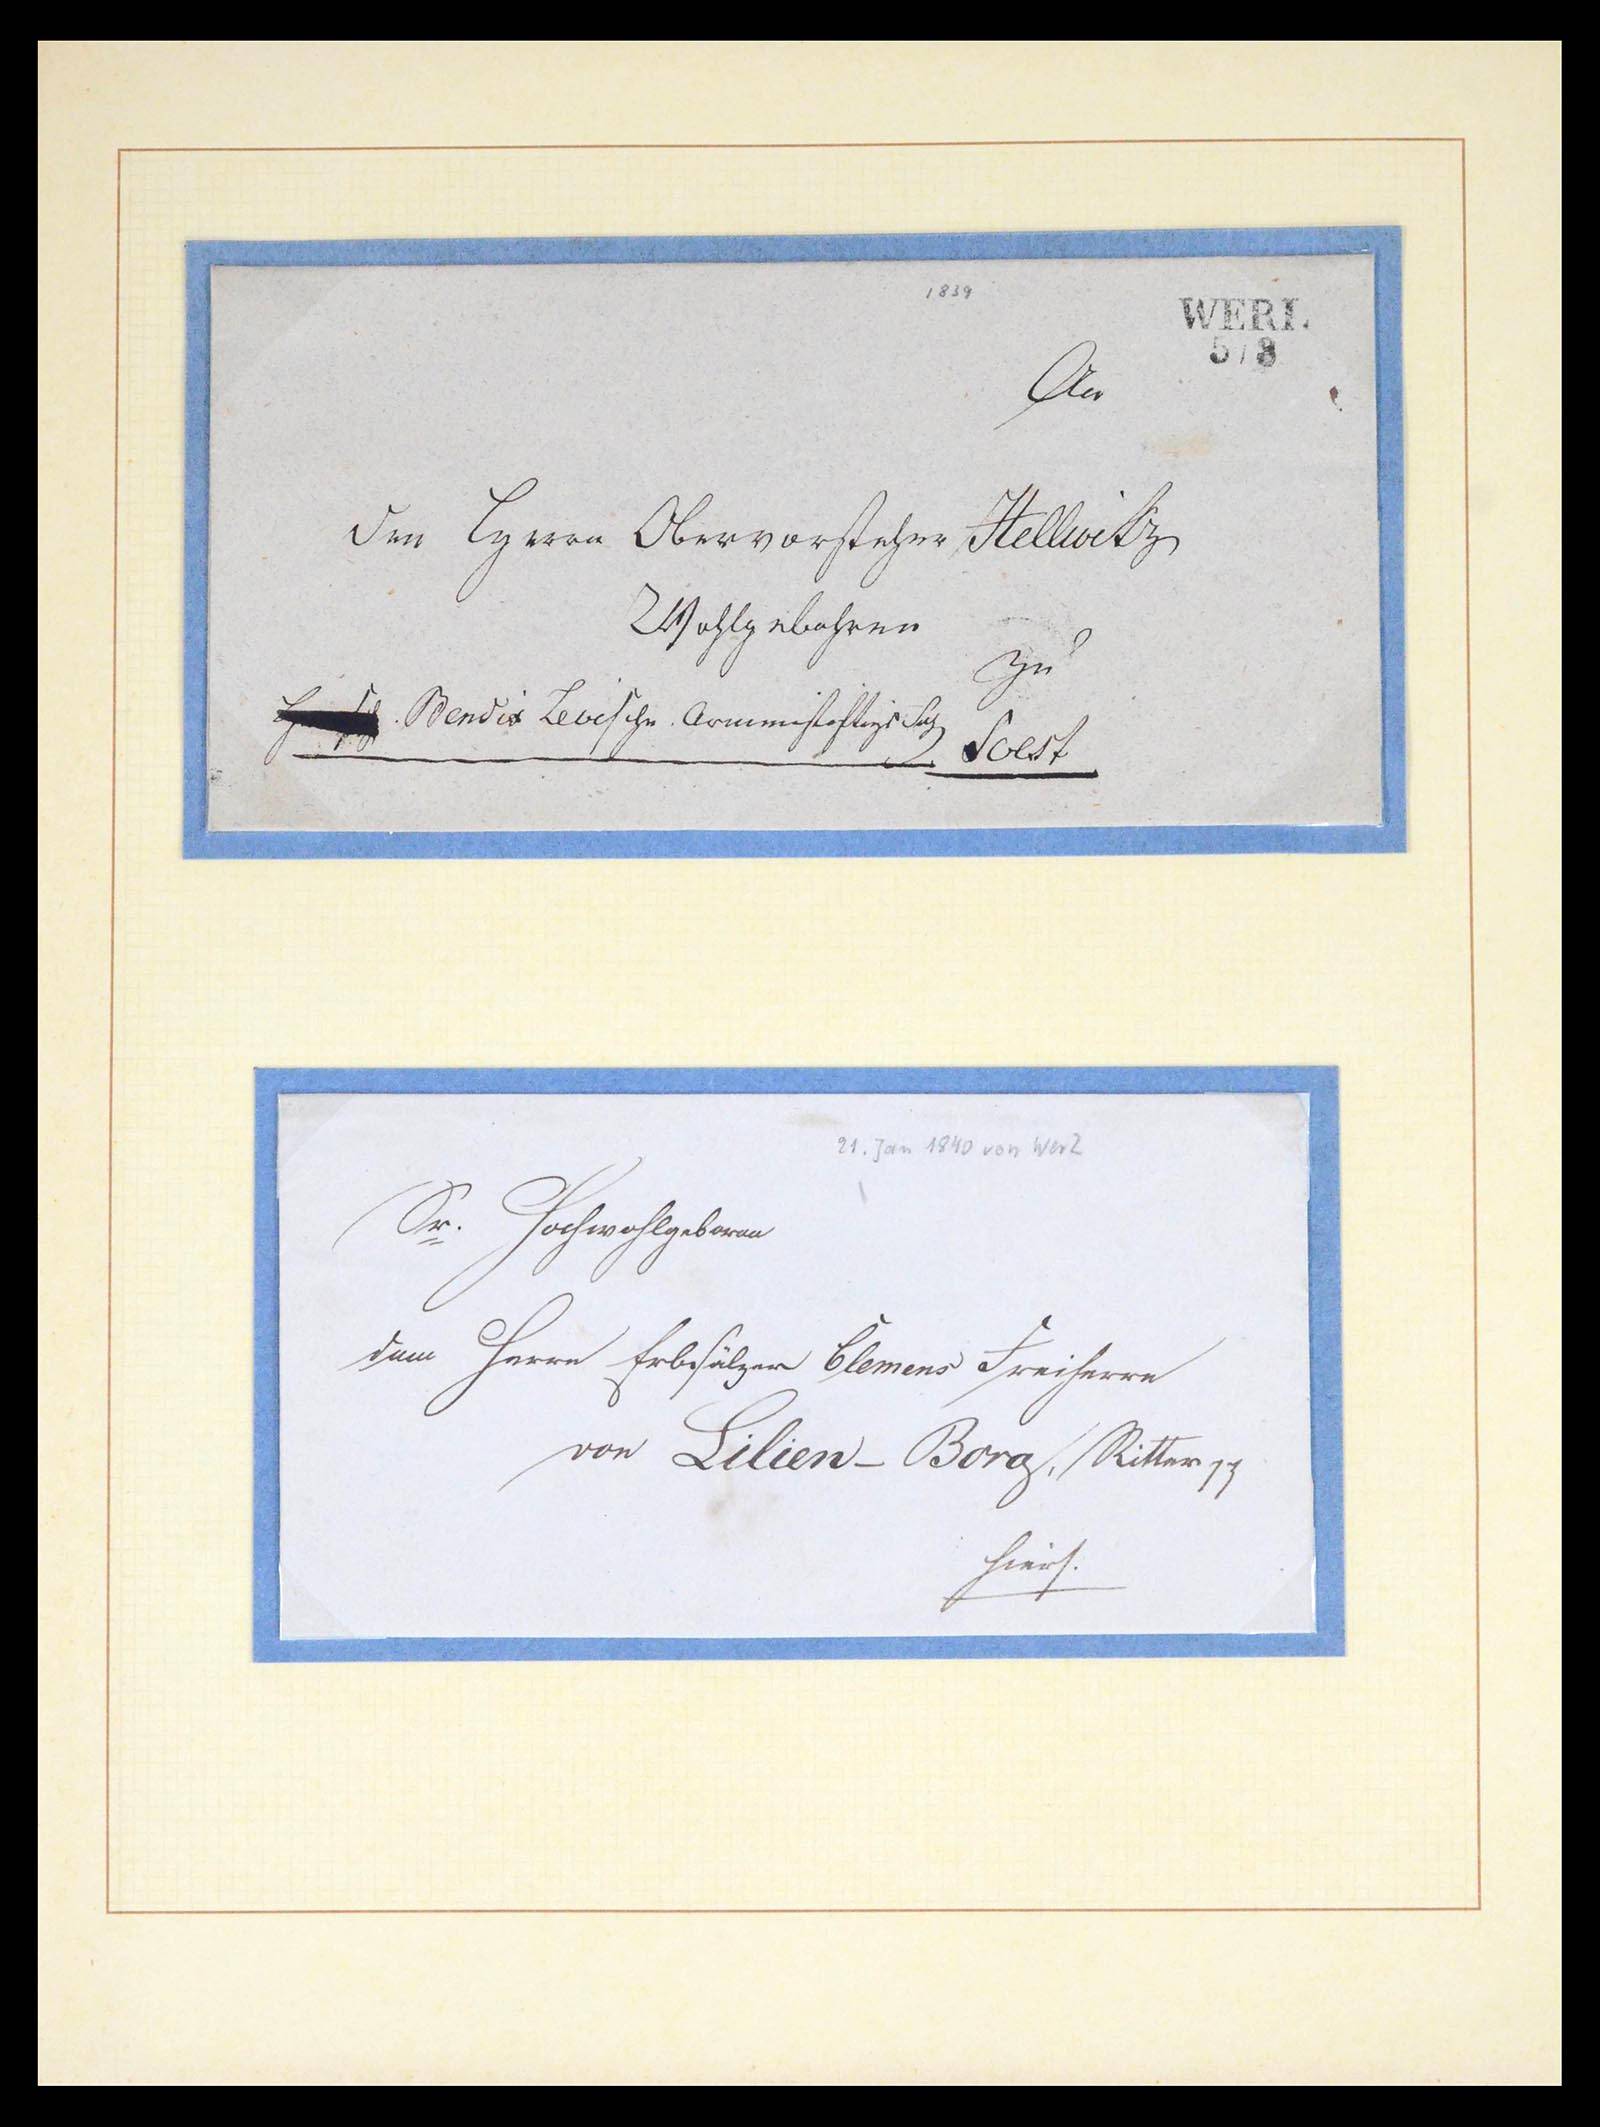 1839
WERL
5/8
An
den Herrn Obervorsteher Hellwitz
Wohlgebohren
zu
Bendix Levische
Soest
21. Jan 1840 von Werl
Sr. Hochwohlgeboren
dem Herrn Erbsälzer Clemens Freiherrn
von Lilien-Borg, Ritter pp
hies.